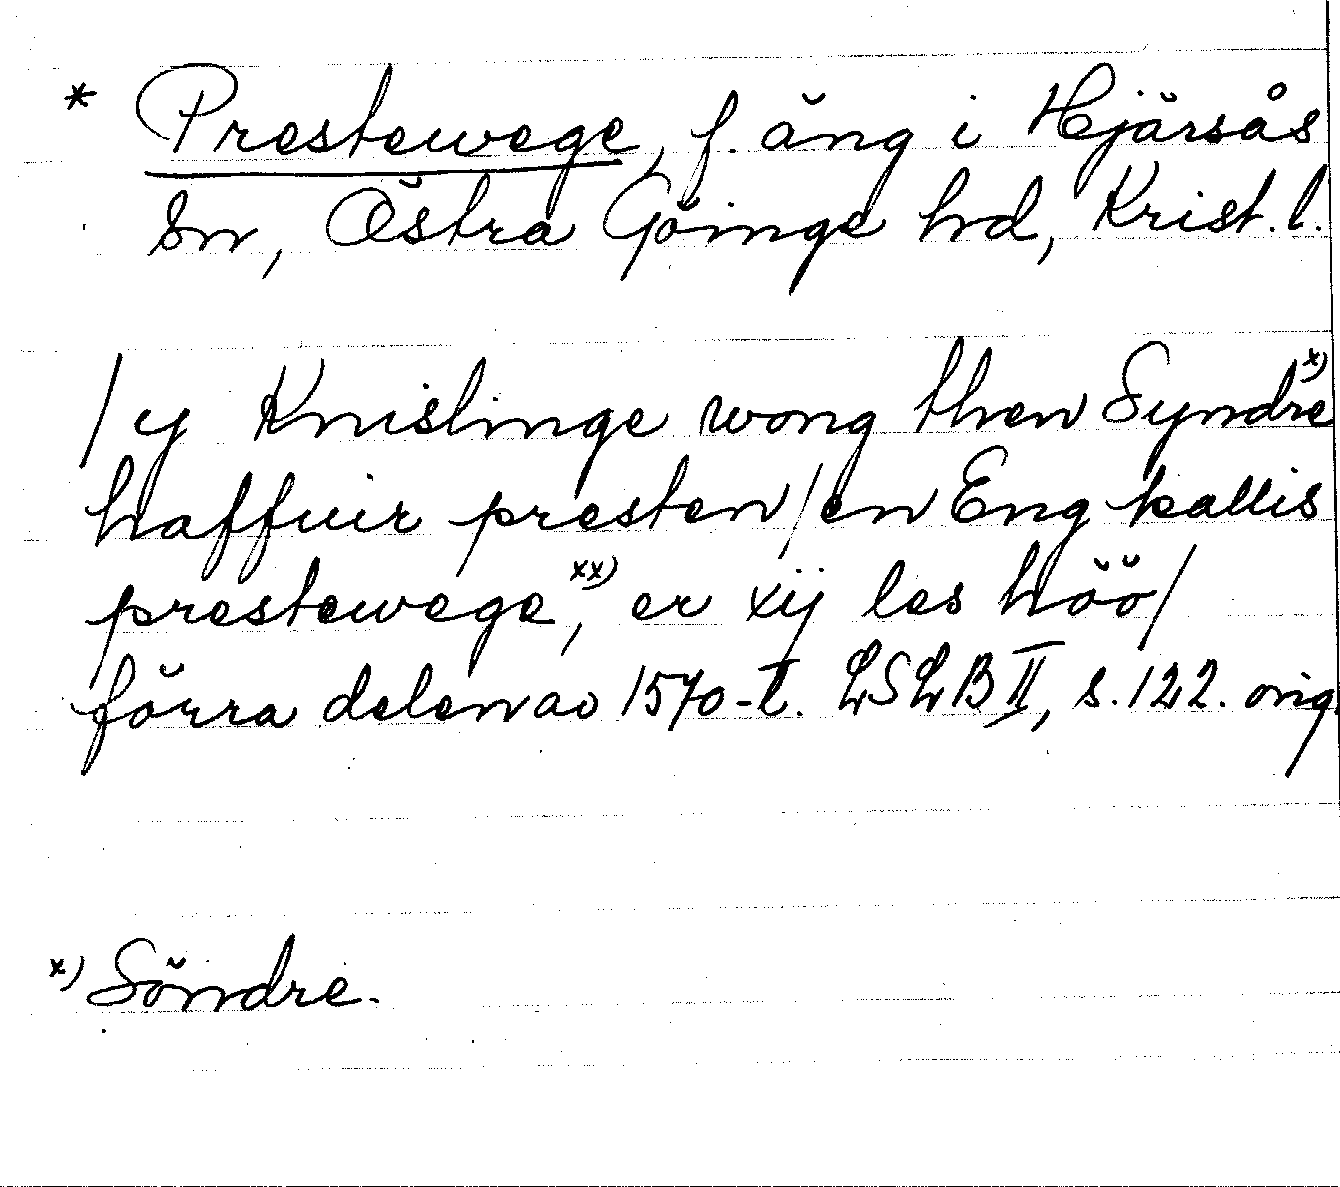 * Prestewege, f. äng i Hjärsås
sn, Östra Göinge hd, Krist. l.
/ y Knislinge wong then Syndre x)
haffuir presten / en Eng kallis
prestewege, xx) er xij les höö /
förra delen av 1570-t. LSLB II, s. 122. orig.
x) Söndre.